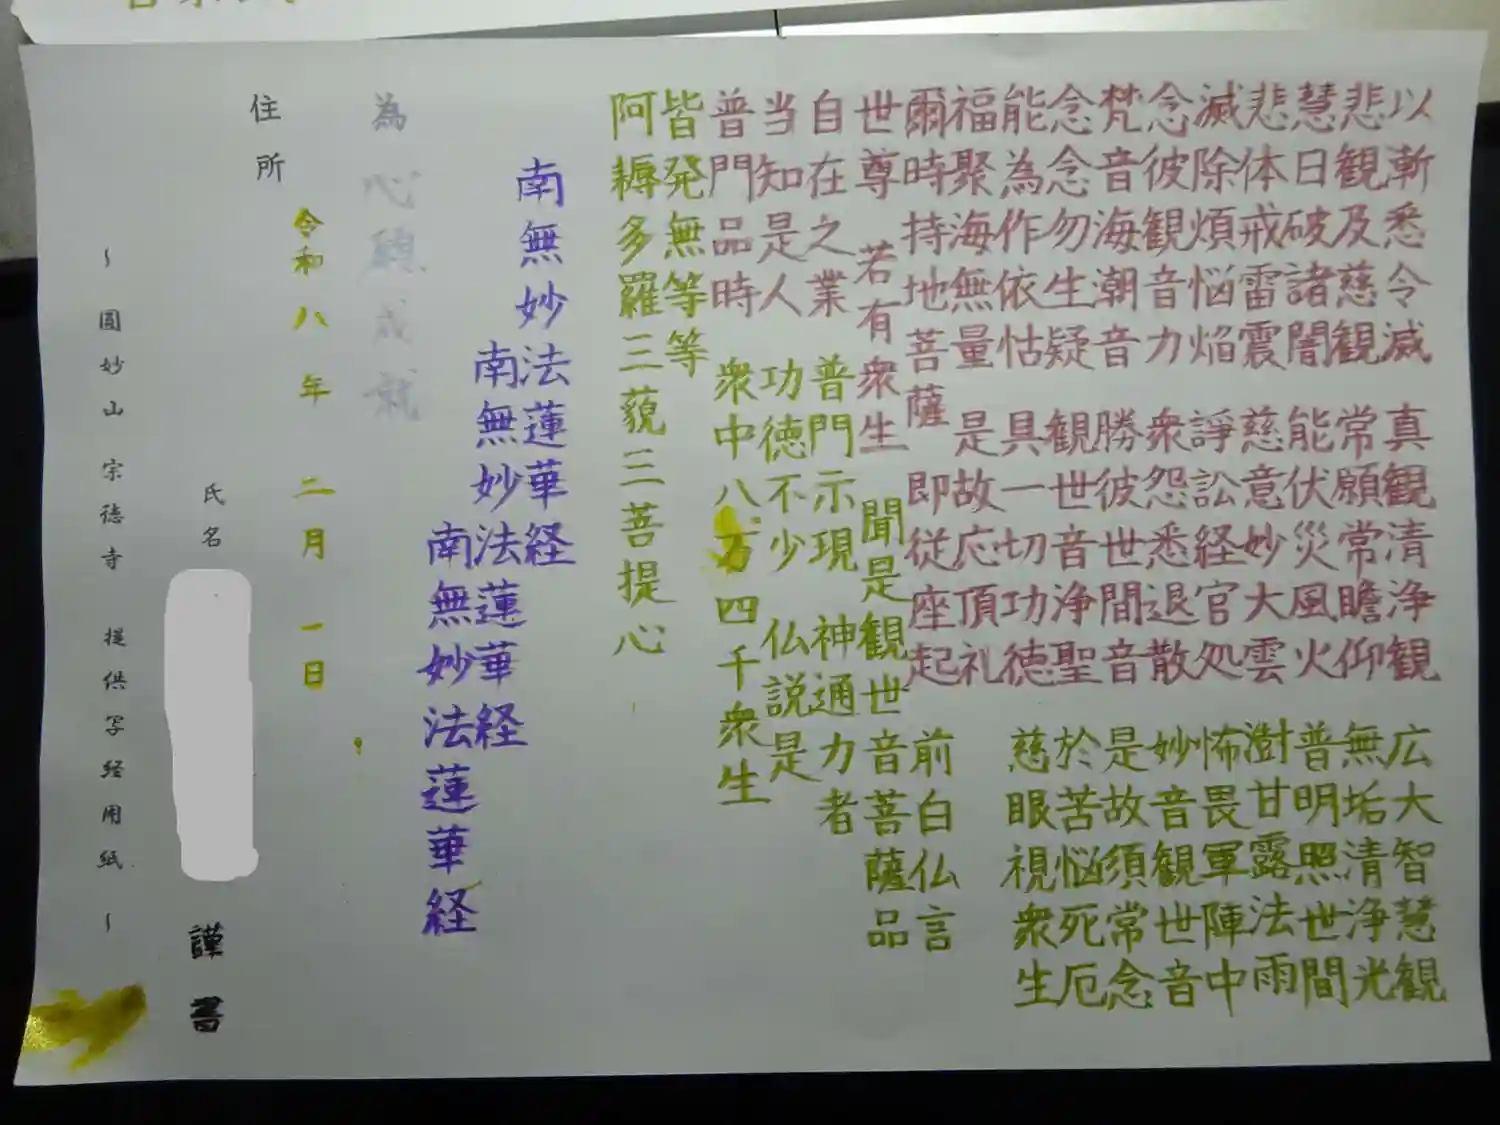 以漸悉令滅　真観清浄観　広大智慧観
悲観及慈観　常願常瞻仰　無垢清浄光
慧日破諸闇　能伏災風火　普明照世間
悲体戒雷震　慈意妙大雲　澍甘露法雨
滅除煩悩焔　諍訟経官処　怖畏軍陣中
念彼観音力　衆怨悉退散　妙音観世音
梵音海潮音　勝彼世間音　是故須常念
念念勿生疑　観世音浄聖　於苦悩死厄
能為作依怙　具一切功徳　慈眼視衆生
福聚海無量　是故応頂礼
爾時持地菩薩　即従座起　前白仏言
世尊　若有衆生　聞是観世音菩薩品
自在之業　普門示現　神通力者
当知是人　功徳不少　仏説是
普門品時　衆中八万四千衆生
皆発無等等
阿耨多羅三藐三菩提心
南無妙法蓮華経
南無妙法蓮華経
南無妙法蓮華経
為心願成就
令和八年　二月　一日
住所
氏名　謹書
～圓妙山　宗徳寺　提供写経用紙～